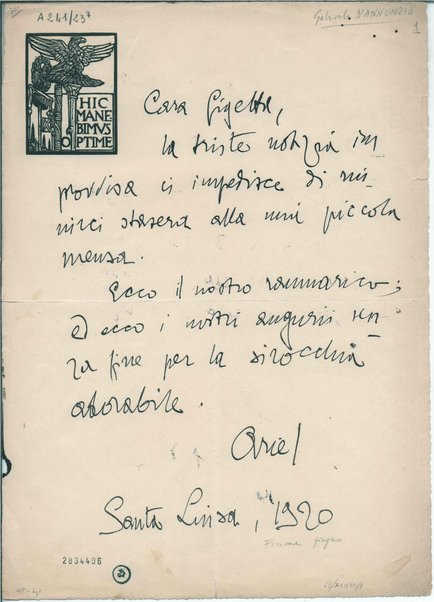 A 241/23⁷
Gabriele D'ANNUNZIO
1
HIC
MANE
BIMVS
OPTIME
Cara Gigetta,
la triste notizia im
provvisa ci impedisce di riu-
nirci stasera alla mia piccola
mensa.
Ecco il nostro rammarico;
ed ecco i nostri augurii sen-
za fine per la sirocchia
adorabile.
Ariel
Santa Luisa, 1920
Fiume giugno
2834406